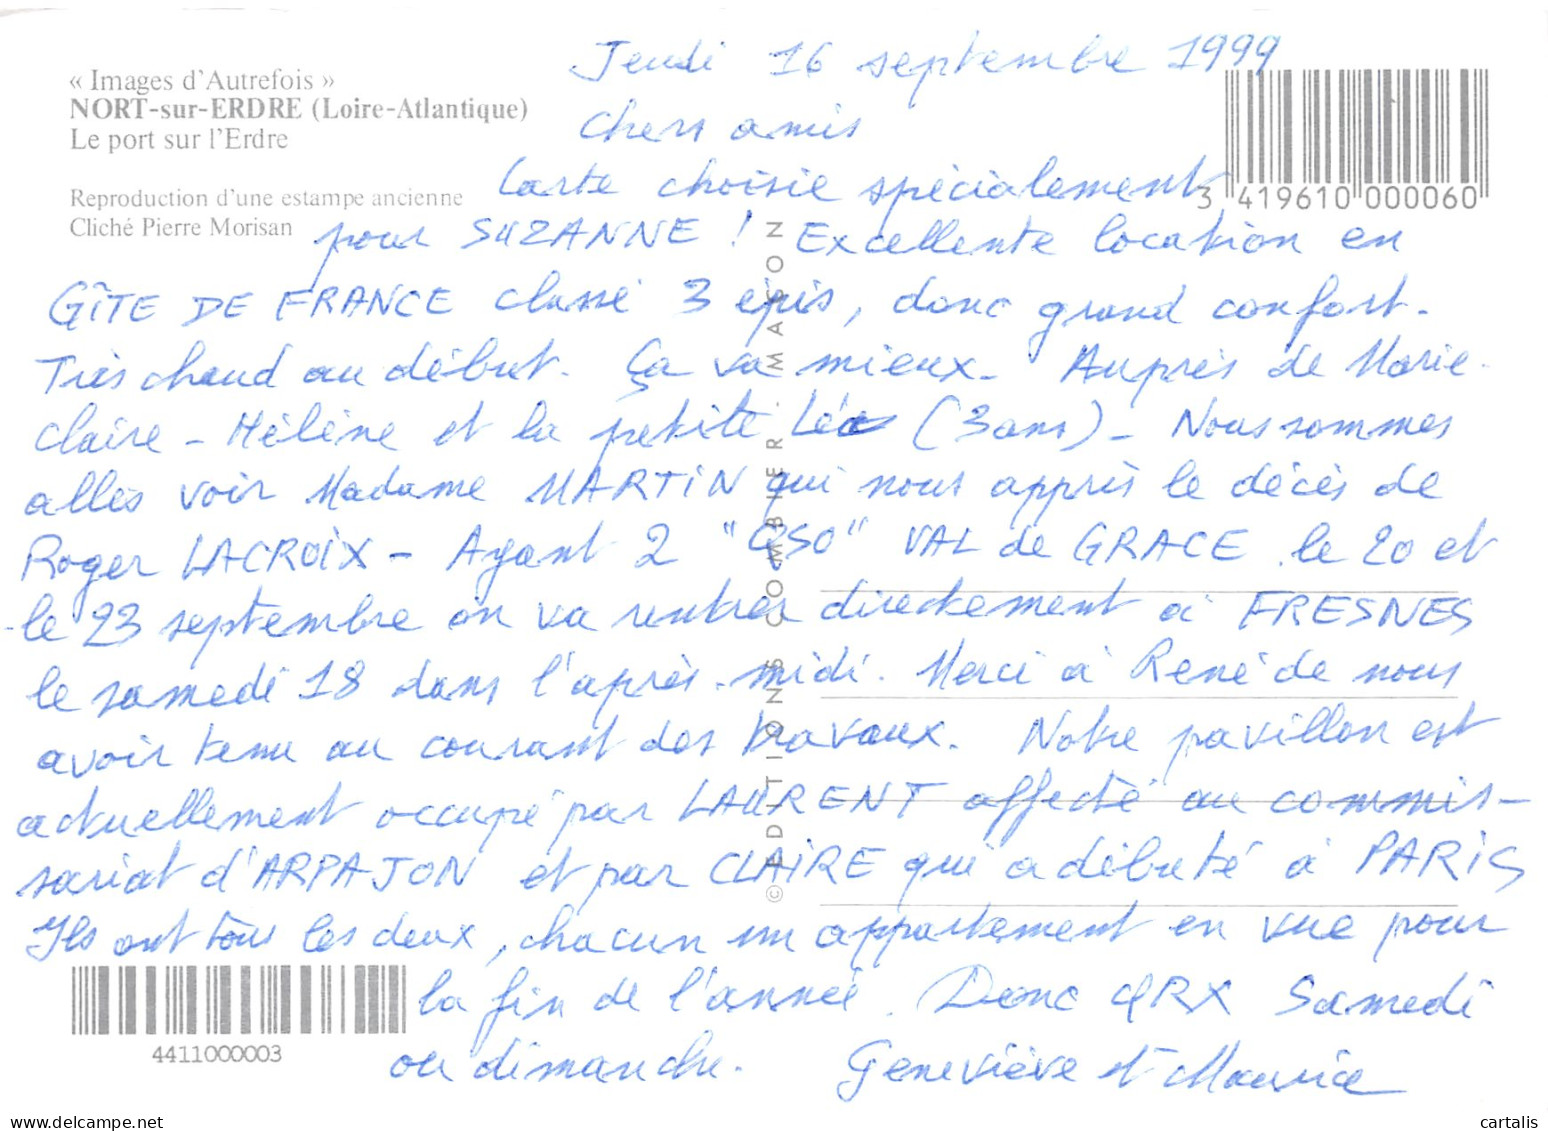 Jeudi 16 septembre 1999
« Images d'Autrefois »
NORT-sur-ERDRE (Loire-Atlantique)
Le port sur l'Erdre
Chers amis
Reproduction d'une estampe ancienne
Cliché Pierre Morisan
3 419610 000060
Carte choisie spécialement
pour SUZANNE ! Excellente location en
GÎTE DE FRANCE classé 3 épis, donc grand confort.
Très chaud au début. Ça va mieux. Auprès de Marie-
claire - Hélène et la petite Léa (3 ans) - Nous sommes
allés voir Madame MARTIN qui nous appris le décès de
Roger LACROIX - Ayant 2 "QSO" VAL de GRACE le 20 et
le 23 septembre on va rentrer directement à FRESNES
le samedi 18 dans l'après-midi. Merci à René de nous
avoir tenu au courant des travaux. Notre pavillon est
actuellement occupé par LAURENT affecté au commis-
sariat d'ARPAJON et par CLAIRE qui a débuté à PARIS
Ils ont tous les deux, chacun un appartement en vue pour
la fin de l'année. Donc QRX Samedi
ou dimanche. Geneviève et Maurice
4411000003
© EDITIONS COMBIER - MASON
cartalis
www.delcampe.net